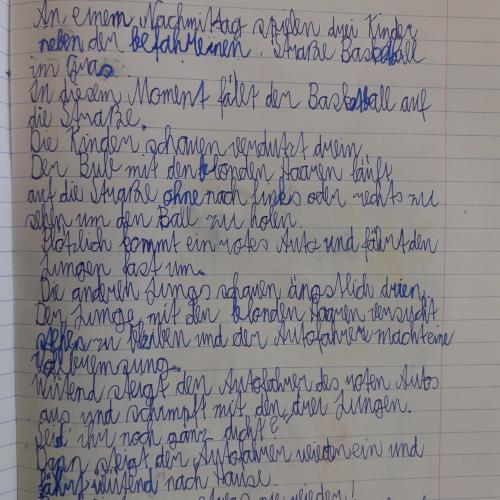 An einem Nachmittag spielen drei Kinder
neben der befahreinen Straße Basketball
im Gras
In diesem Moment fällt der Basketball auf
die Straße.
Die Kinder schauen verdutzt drein
Der Bub mit den blonden Haaren läuft
auf die Straße ohne nach links oder rechts zu
sehen um den Ball zu holen.
Plötzlich kommt ein rotes Auto und fährt den
Jungen fast um.
Die anderen Jungs schauen ängstlich drein,
Der Junge mit den blonden Haaren versucht
stehen zu bleiben und der Autofahrer macht eine
Vollbremsung.
Wütend steigt der Autofahrer des roten Autos
aus und schimpft mit den drei Jungen.
Seid ihr noch ganz dicht?"
Dann steigt der Autofahrer wieder ein und
fährt wütend nach Hause.
nie wieder!